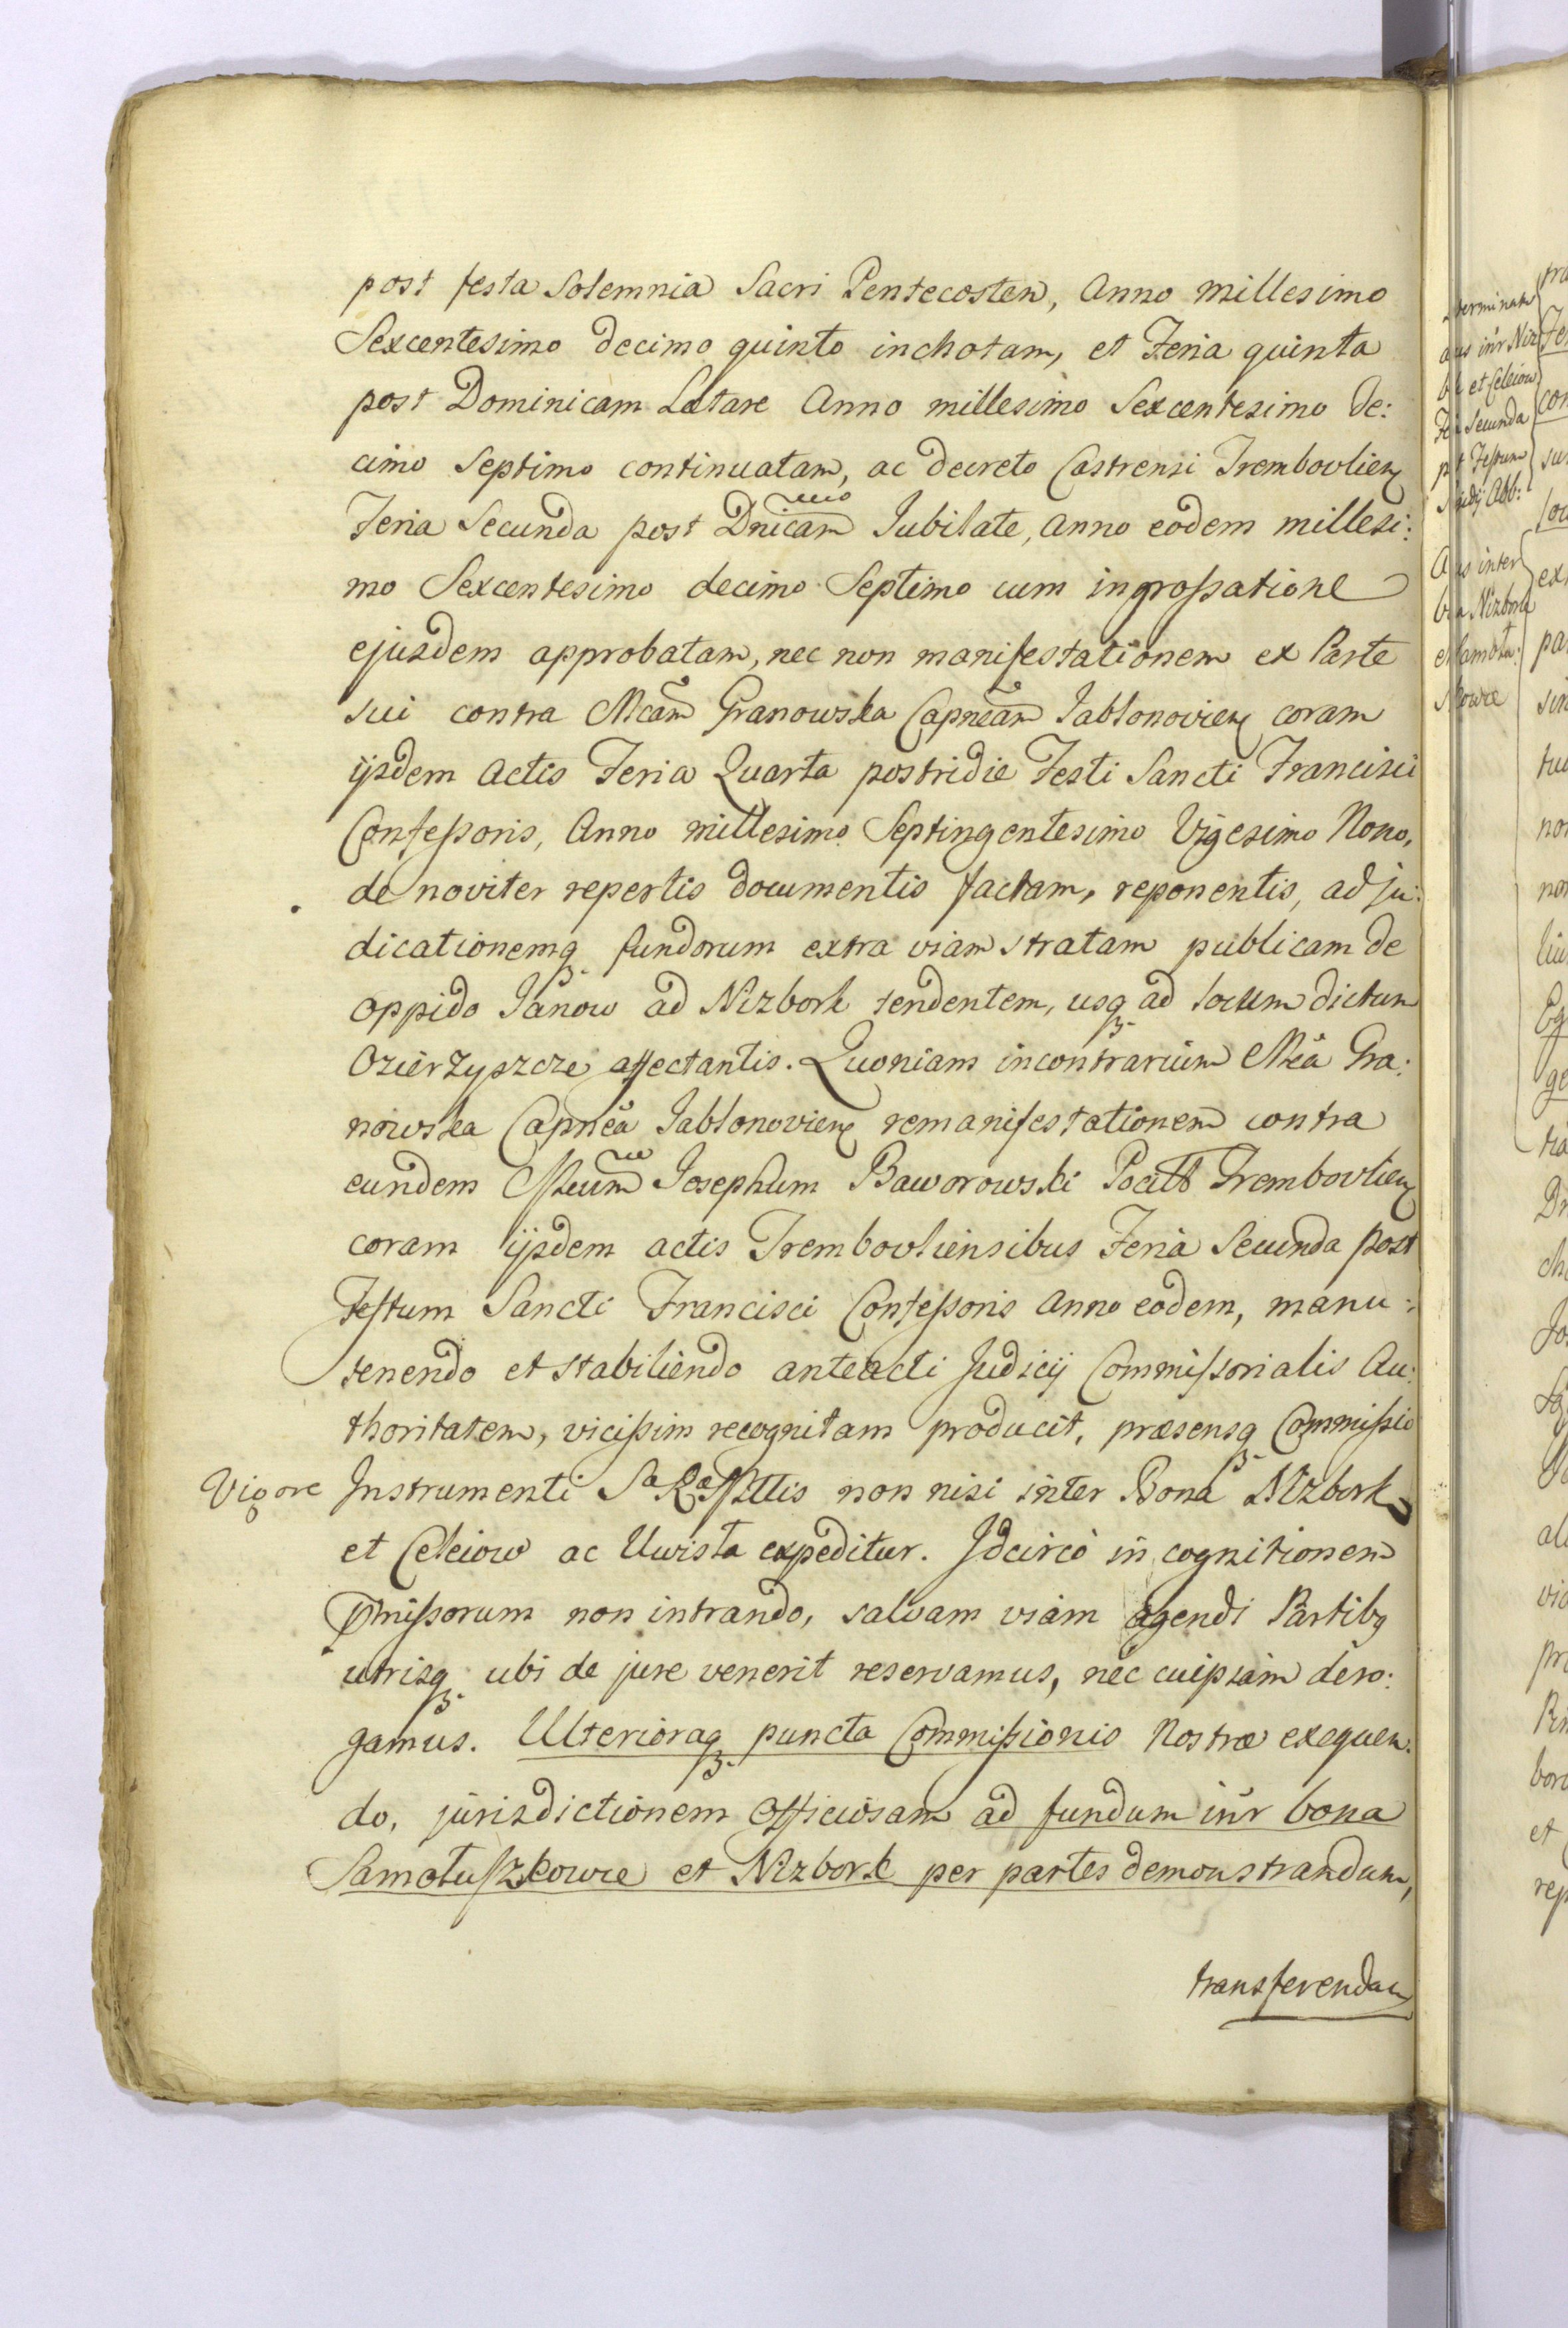 post festa Solemnia Sacri Pentecosten, Anno millesimo
Sexcentesimo decimo quinto inchotam, et Feria quinta
post Dominicam Lætare Anno millesimo Sexcentesimo de:
cimo Septimo continuatam, ac decreto Castrensi Trembovlien
Feria Secunda post Dnicam Jubilate, Anno eodem millesi:
mo Sexcentesimo decimo Septimo cum ingrossatione
ejusdem approbatam, nec non manifestationem ex Parte
sui contra Mcam Granowska Capneam Jablonovien coram
ijsdem Actis Feria Quarta postridie Festi Sancti Francisci
Confessoris, Anno millesimo Septingentesimo Vigesimo Nono,
de noviter repertis documentis factam, reponentis, adju:
dicationemq fundorum extra viam stratam publicam de
oppido Janow ad Nizbork tendentem, usq ad locum dictum
Ozierzyszcze affectantis. Quoniam incontrarium Mca Gra:
nowska Capnea Jablonovien remanifestationem contra
eundem Josephum Baworowski Pocill Trembovlien
coram ijsdem actis Trembovliensibus Feria Secunda post
Festum Sancti Francisci Confessoris Anno eodem, manu:
tenendo et stabiliendo anteacti Judicij Commissorialis Au:
thoritatem, vicissim recognitam producit, præsensq Commissio
Vigore Instrumenti Sæ Ræ Mttis non nisi inter Bona Nizbork
et Celeiow ac Uwista expeditur. Idcirco in cognitionem
pmissorum non intrando, salvam viam agendi Partibq
utrisq ubi de jure venerit reservamus, nec cuipiam dero:
gamus. Ulterioraq puncta Commissionis Nostræ exequen:
do, jurisdictionem Officiosam ad fundum intr bona
Samotuszkowce et Nizbork per partes demonstrandum,
transferendam